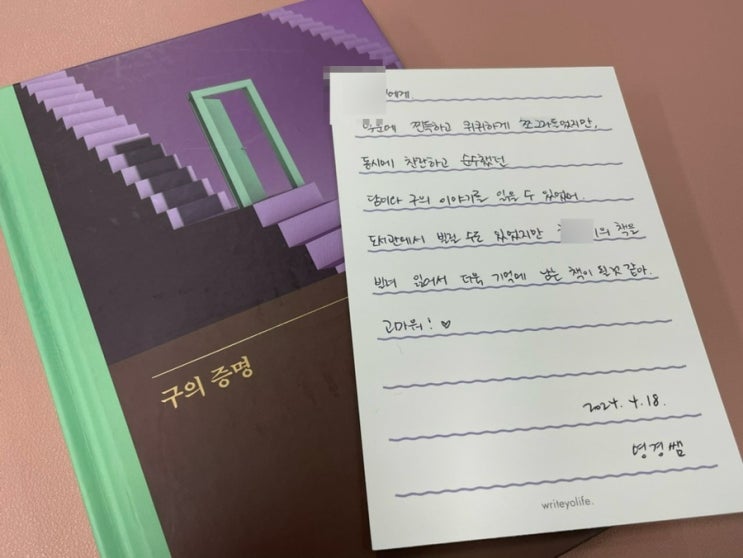 구의 증명
에게
덕분에 찐득하고 퀴퀴하게 쪼그라들었지만,
동시에 찬란하고 순수했던
담이와 구의 이야기를 읽을 수 있었어.
도서관에서 빌릴 수도 있었지만 의 책을
빌려 읽어서 더욱 기억에 남는 책이 될것 같아.
고마워! ♡
2024. 4. 18.
영경쌤
writeyolife.